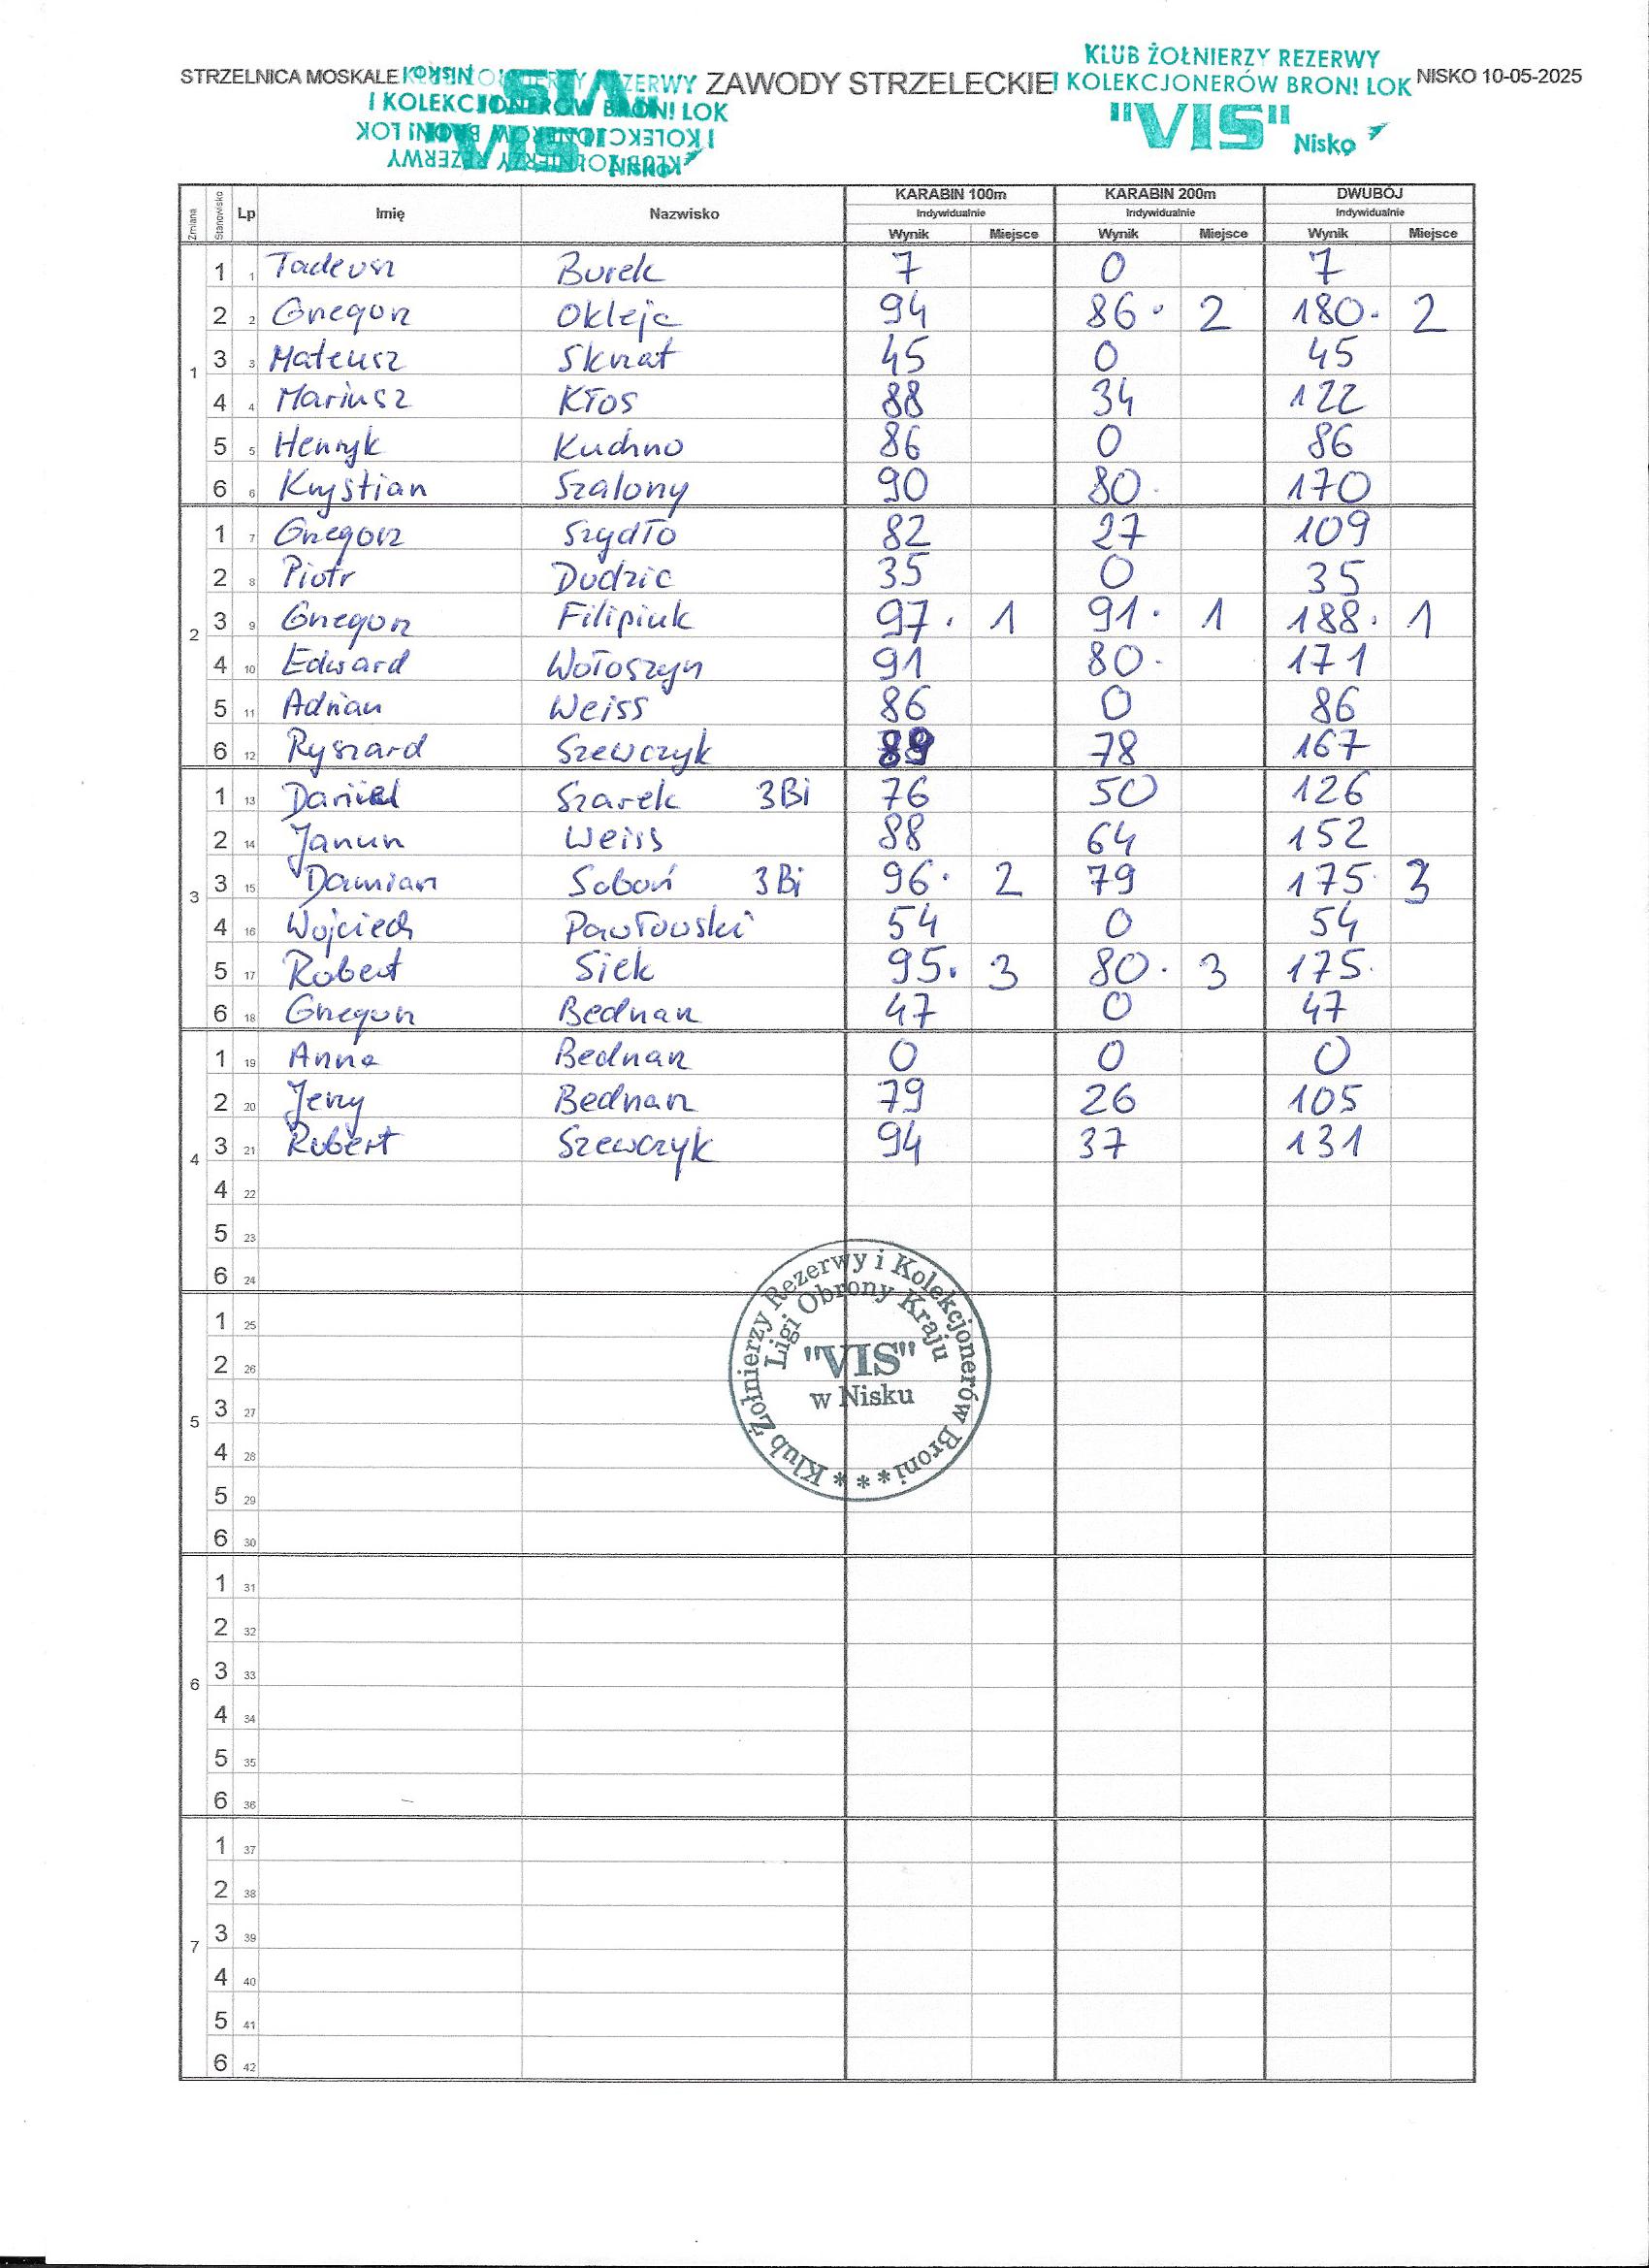 KLUB ŻOŁNIERZY REZERWY
STRZELNICA MOSKALE ZAWODY STRZELECKIE I KOLEKCJONERÓW BRONI LOK NISKO 10-05-2025
I KOLEKCJONERÓW BRONI LOK
"VIS"
Nisko
KARABIN 100m KARABIN 200m DWUBÓJ
Zmiana Stanowisko Lp Imię Nazwisko Indywidualnie Indywidualnie Indywidualnie
Wynik Miejsce Wynik Miejsce Wynik Miejsce
1 1 Tadeusz Burek 7 0 7
2 2 Grzegorz Okleja 94 86. 2 180. 2
1 3 3 Mateusz Skrzat 45 0 45
4 4 Mariusz Kłos 88 34 122
5 5 Henryk Kuchno 86 0 86
6 6 Krystian Szalony 90 80. 170
1 7 Grzegorz Szydło 82 27 109
2 8 Piotr Dudzic 35 0 35
2 3 9 Grzegorz Filipiuk 97. 1 91. 1 188. 1
4 10 Edward Wołoszyn 91 80. 171
5 11 Adrian Weiss 86 0 86
6 12 Ryszard Szewczyk 89 78 167
1 13 Daniel Szarek 3Bi 76 50 126
2 14 Janusz Weiss 88 64 152
3 3 15 Damian Soboń 3Bi 96. 2 79 175. 3
4 16 Wojciech Pawłowski 54 0 54
5 17 Robert Siek 95. 3 80. 3 175.
6 18 Grzegorz Bednarz 47 0 47
1 19 Anna Bednarz 0 0 0
2 20 Jerzy Bednarz 79 26 105
4 3 21 Robert Szewczyk 94 37 131
4 22
5 23
6 24
1 25
2 26
5 3 27
4 28
5 29
6 30
Klub Żołnierzy Rezerwy i Kolekcjonerów Broni ***
Ligi Obrony Kraju
"VIS"
w Nisku
1 31
2 32
6 3 33
4 34
5 35
6 36
1 37
2 38
7 3 39
4 40
5 41
6 42